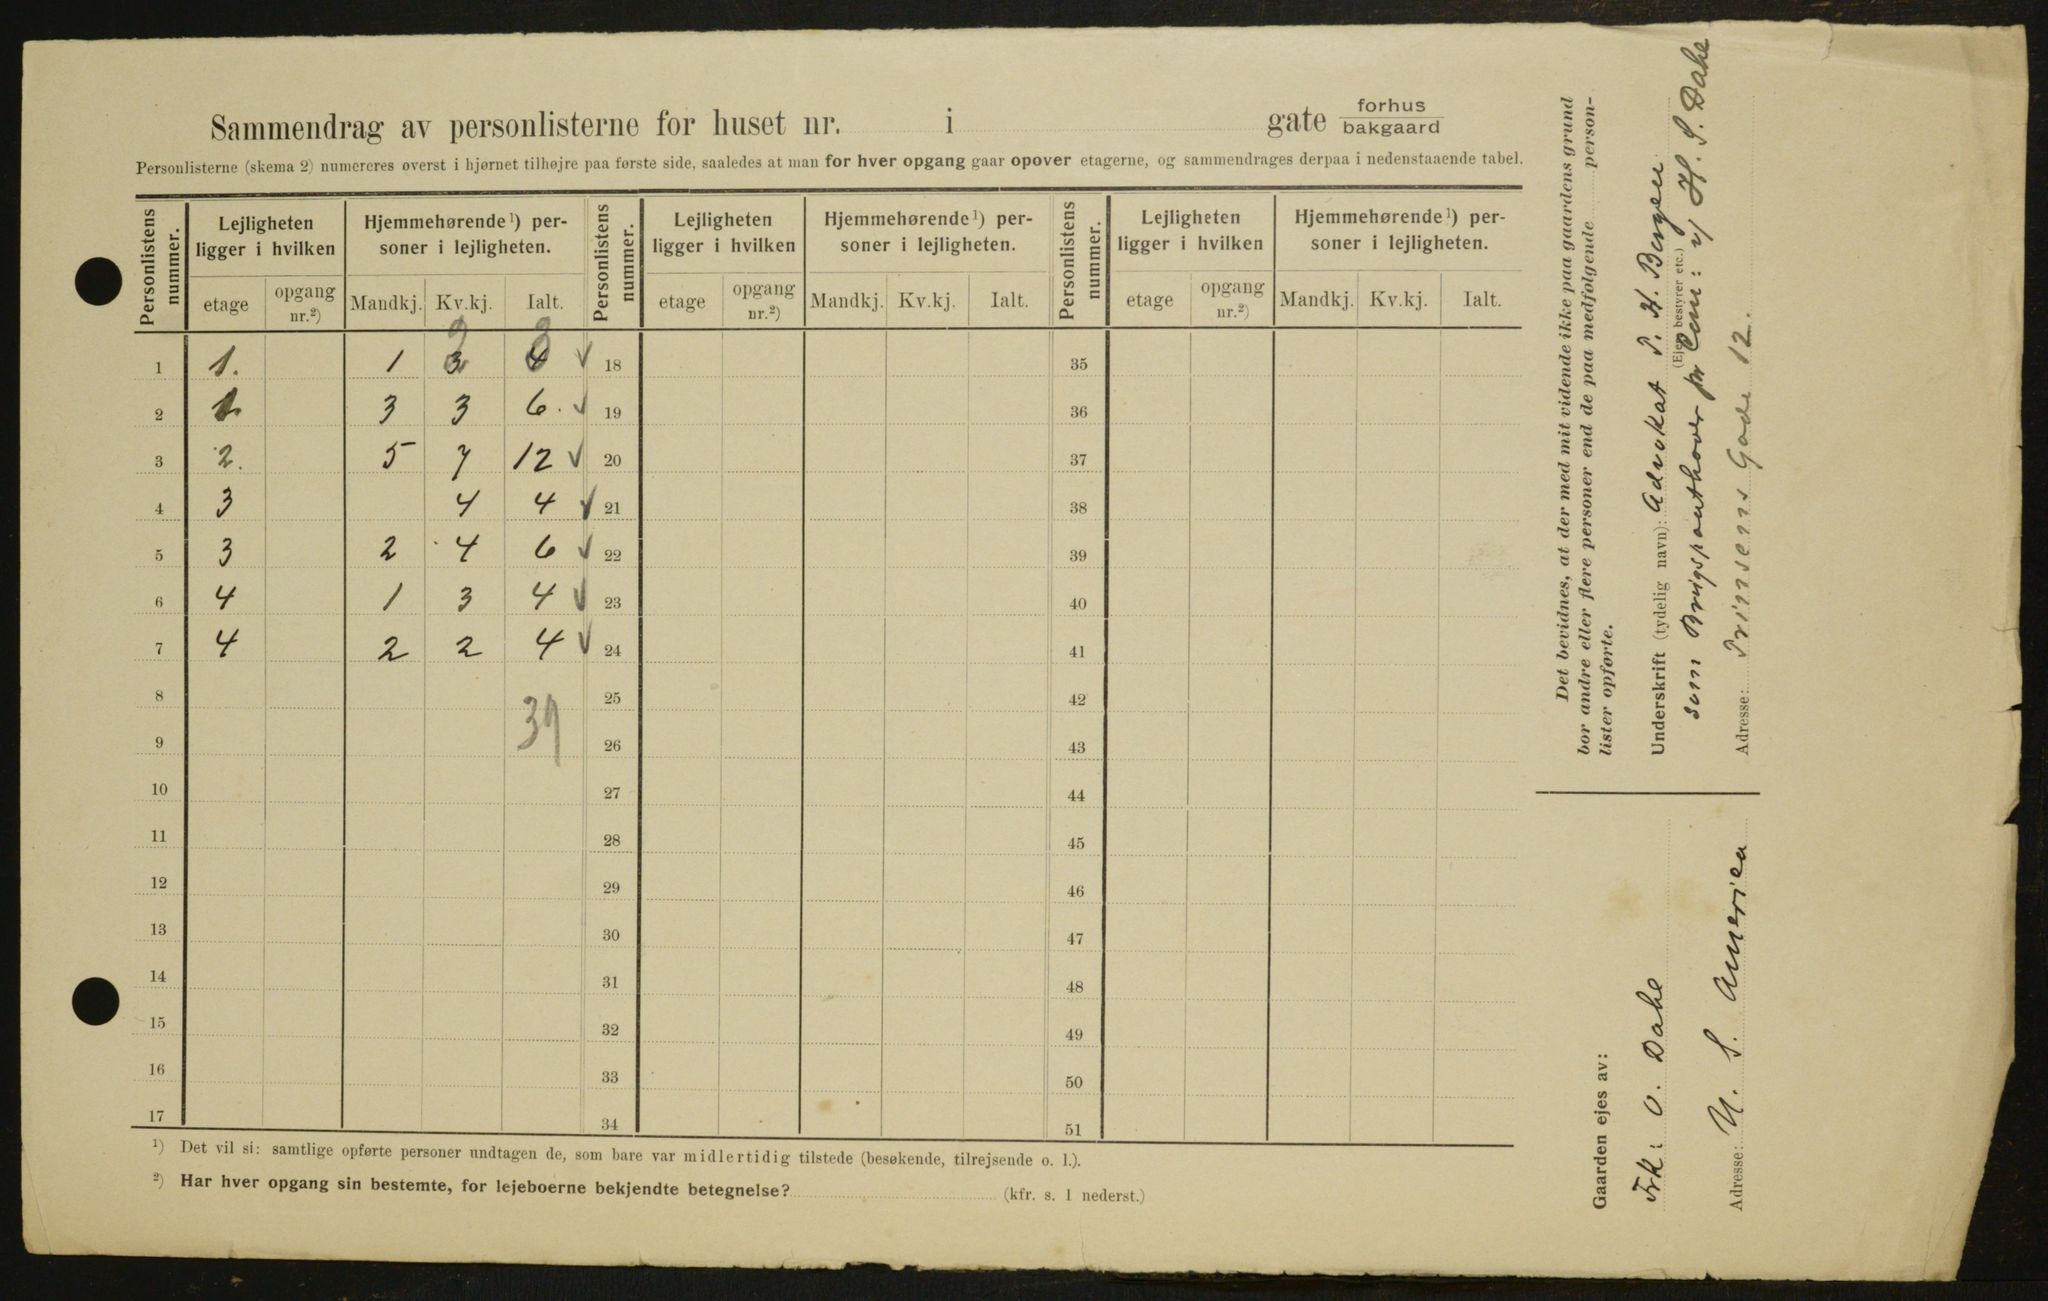 Sammendrag av personlisterne for huset nr. i gate forhus
bakgaard
Personlisterne (skema 2) numereres øverst i hjørnet tilhøjre paa første side, saaledes at man for hver opgang gaar opover etagerne, og sammendrages derpaa i nedenstaaende tabel.
Personlistens nummer. Lejligheten ligger i hvilken Hjemmehørende¹) personer i lejligheten. Personlistens nummer. Lejligheten ligger i hvilken Hjemmehørende¹) personer i lejligheten. Personlistens nummer. Lejligheten ligger i hvilken Hjemmehørende¹) personer i lejligheten.
etage opgang nr.²) Mandkj. Kv.kj. Ialt. etage opgang nr.²) Mandkj. Kv.kj. Ialt. etage opgang nr.²) Mandkj. Kv.kj. Ialt.
1 1. 1 3 4 ✓ 18 35
2 1 3 3 6. ✓ 19 36
3 2. 5 7 12 ✓ 20 37
4 3 4 4 ✓ 21 38
5 3 2 4 6 ✓ 22 39
6 4 1 3 4 ✓ 23 40
7 4 2 2 4 ✓ 24 41
8 25 42
39
9 26 43
10 27 44
11 28 45
12 29 46
13 30 47
14 31 48
15 32 49
16 33 50
17 34 51
¹) Det vil si: samtlige opførte personer undtagen de, som bare var midlertidig tilstede (besøkende, tilrejsende o. l.).
²) Har hver opgang sin bestemte, for lejeboerne bekjendte betegnelse? (kfr. s. 1 nederst.)
Det bevidnes, at der med mit vidende ikke paa gaardens grund
bor andre eller flere personer end de paa medfølgende person-
lister opførte.
Underskrift (tydelig navn): Advokat P. H. Bergen
(Ejer, bestyrer etc.)
som v/ H. S. Dahe
Adresse: Prinsens Gade 12.
Gaarden ejes av:
Frk: O. Dahe
Adresse: U. S. America